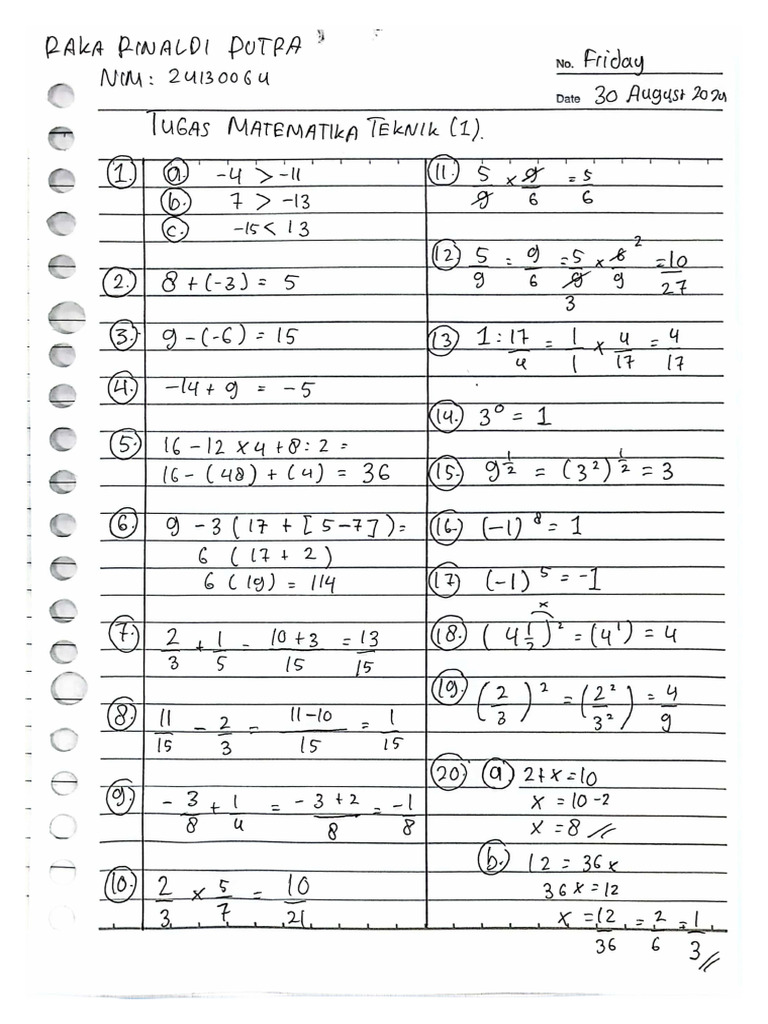 RAKA RINALDI PUTRA
NIM: 24130064
No. Friday
Date 30 August 2024
TUGAS MATEMATIKA TEKNIK (1).
1. a. -4 > -11
b. 7 > -13
c. -15 < 13
2. 8 + (-3) = 5
3. 9 - (-6) = 15
4. -14 + 9 = -5
5. 16 - 12 x 4 + 8 : 2 =
16 - (48) + (4) = 36
6. 9 - 3 (17 + [5-7]) =
6 (17 + 2)
6 (19) = 114
7. 2/3 + 1/5 = 10+3/15 = 13/15
8. 11/15 - 2/3 = 11-10/15 = 1/15
9. -3/8 + 1/4 = -3+2/8 = -1/8
10. 2/3 x 5/7 = 10/21
11. 5/9 x 9/6 = 5/6
12 5/9 : 9/6 = 5/9 3 x 6/9 2 = 10/27
13 1 : 17/4 = 1/1 x 4/17 = 4/17
14. 3⁰ = 1
15. 9^1/2 = (3²)^1/2 = 3
16. (-1)⁸ = 1
17 (-1)⁵ = -1
x
18. (4^1/2)² = (4¹) = 4
19. (2/3)² = (2²/3²) = 4/9
20. a 2+x = 10
x = 10-2
x = 8 //
b. 12 = 36x
36x = 12
x = 12/36 = 2/6 = 1/3 //